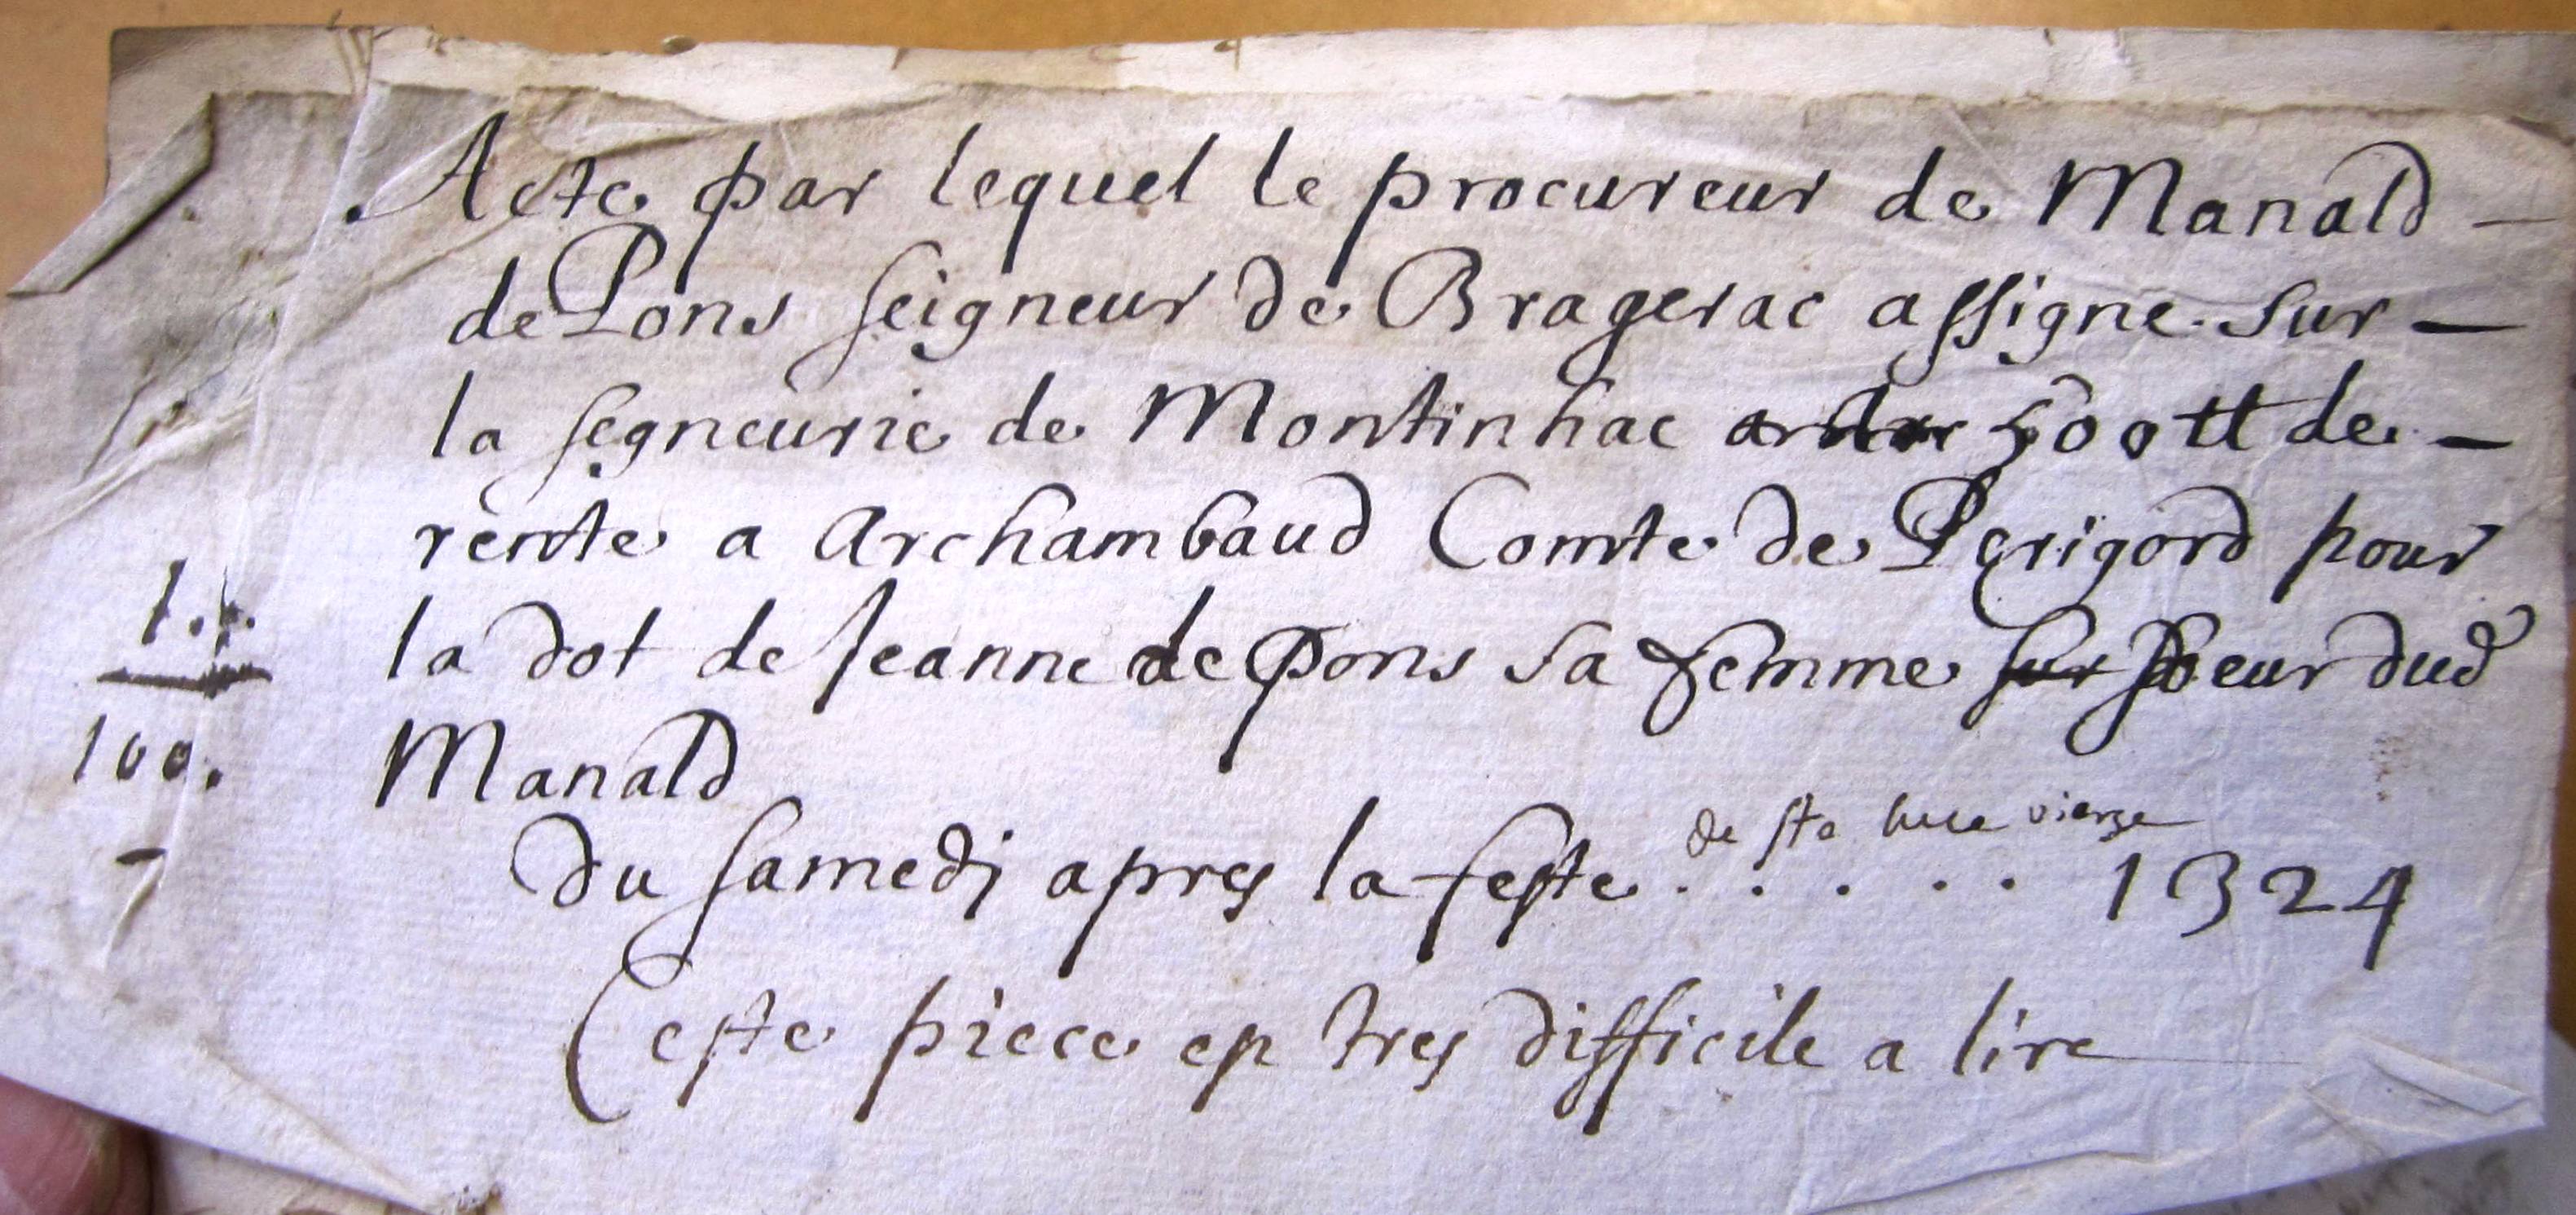 Acte par lequel le procureur de Manald -
de Pons seigneur de Bragerac assigne sur -
la segneurie de Montinhac 500 tt de -
rente a Archambaud Comte de Perigord pour
la dot de Jeanne de Pons sa femme sur soeur dud
Manald
1.
100.
de ste luce vierge
du samedi apres la feste . . . . . 1324
Ceste piece est tres difficile a lire